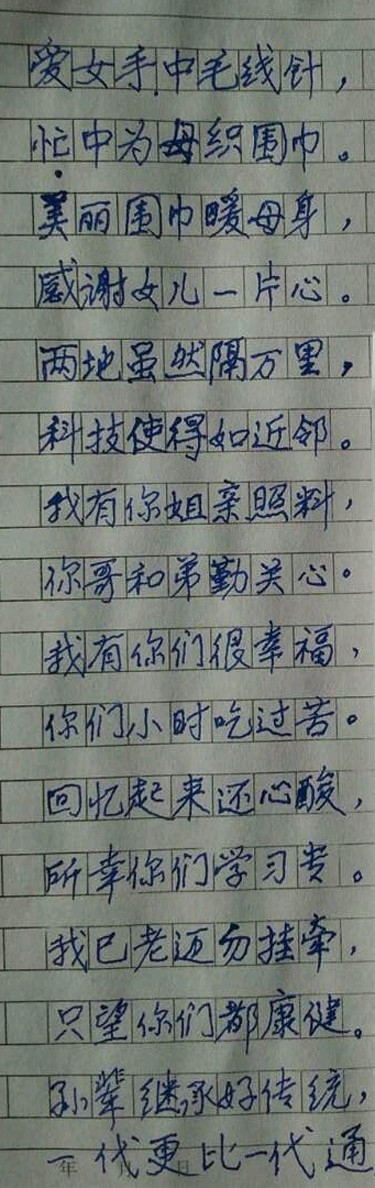 爱女手中毛线针，
忙中为母织围巾。
美丽围巾暖母身，
感谢女儿一片心。
两地虽然隔万里，
科技使得如近邻。
我有你姐亲照料，
你哥和弟勤关心。
我有你们很幸福，
你们小时吃过苦。
回忆起来还心酸，
所幸你们学习贵。
我已老迈勿挂牵，
只望你们都康健。
孙辈继承好传统，
一代更比一代通
年 月 日